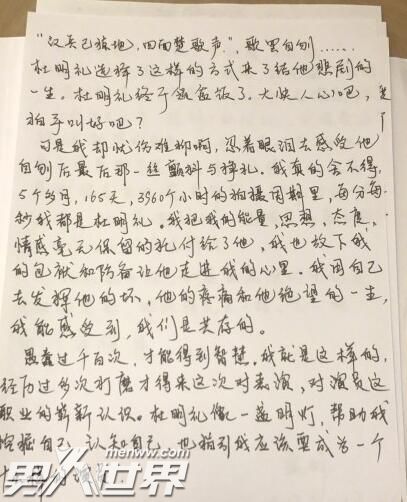 “汉兵已掠地，四面楚歌声”，歌罢自刎……
杜明礼选择了这样的方式来了结他悲剧的
一生。杜明礼终于领盒饭了。大快人心吧，是
拍手叫好吧？
可是我却忧伤难抑啊，忍着眼泪去感受他
自刎后最后那一丝颤抖与挣扎。我真的舍不得，
5个多月，165天，3960个小时的拍摄周期里，每分每
秒我都是杜明礼。我把我的能量，思想，态度，
情感毫无保留的托付给了他，我也放下我
的包袱和防备让他走进我的心里。我用自己
去发挥他的坏，他的疼痛和他绝望的一生，
我能感受到，我们是共存的。
愚蠢过千百次，才能得到智慧，我就是这样的，
经历过多次打磨才得来这次对表演，对演员这
职业的崭新认识。杜明礼像一盏明灯，帮助我
挖掘自己，认知自己，也指引我应该要成为一个
男人世界
menww.com